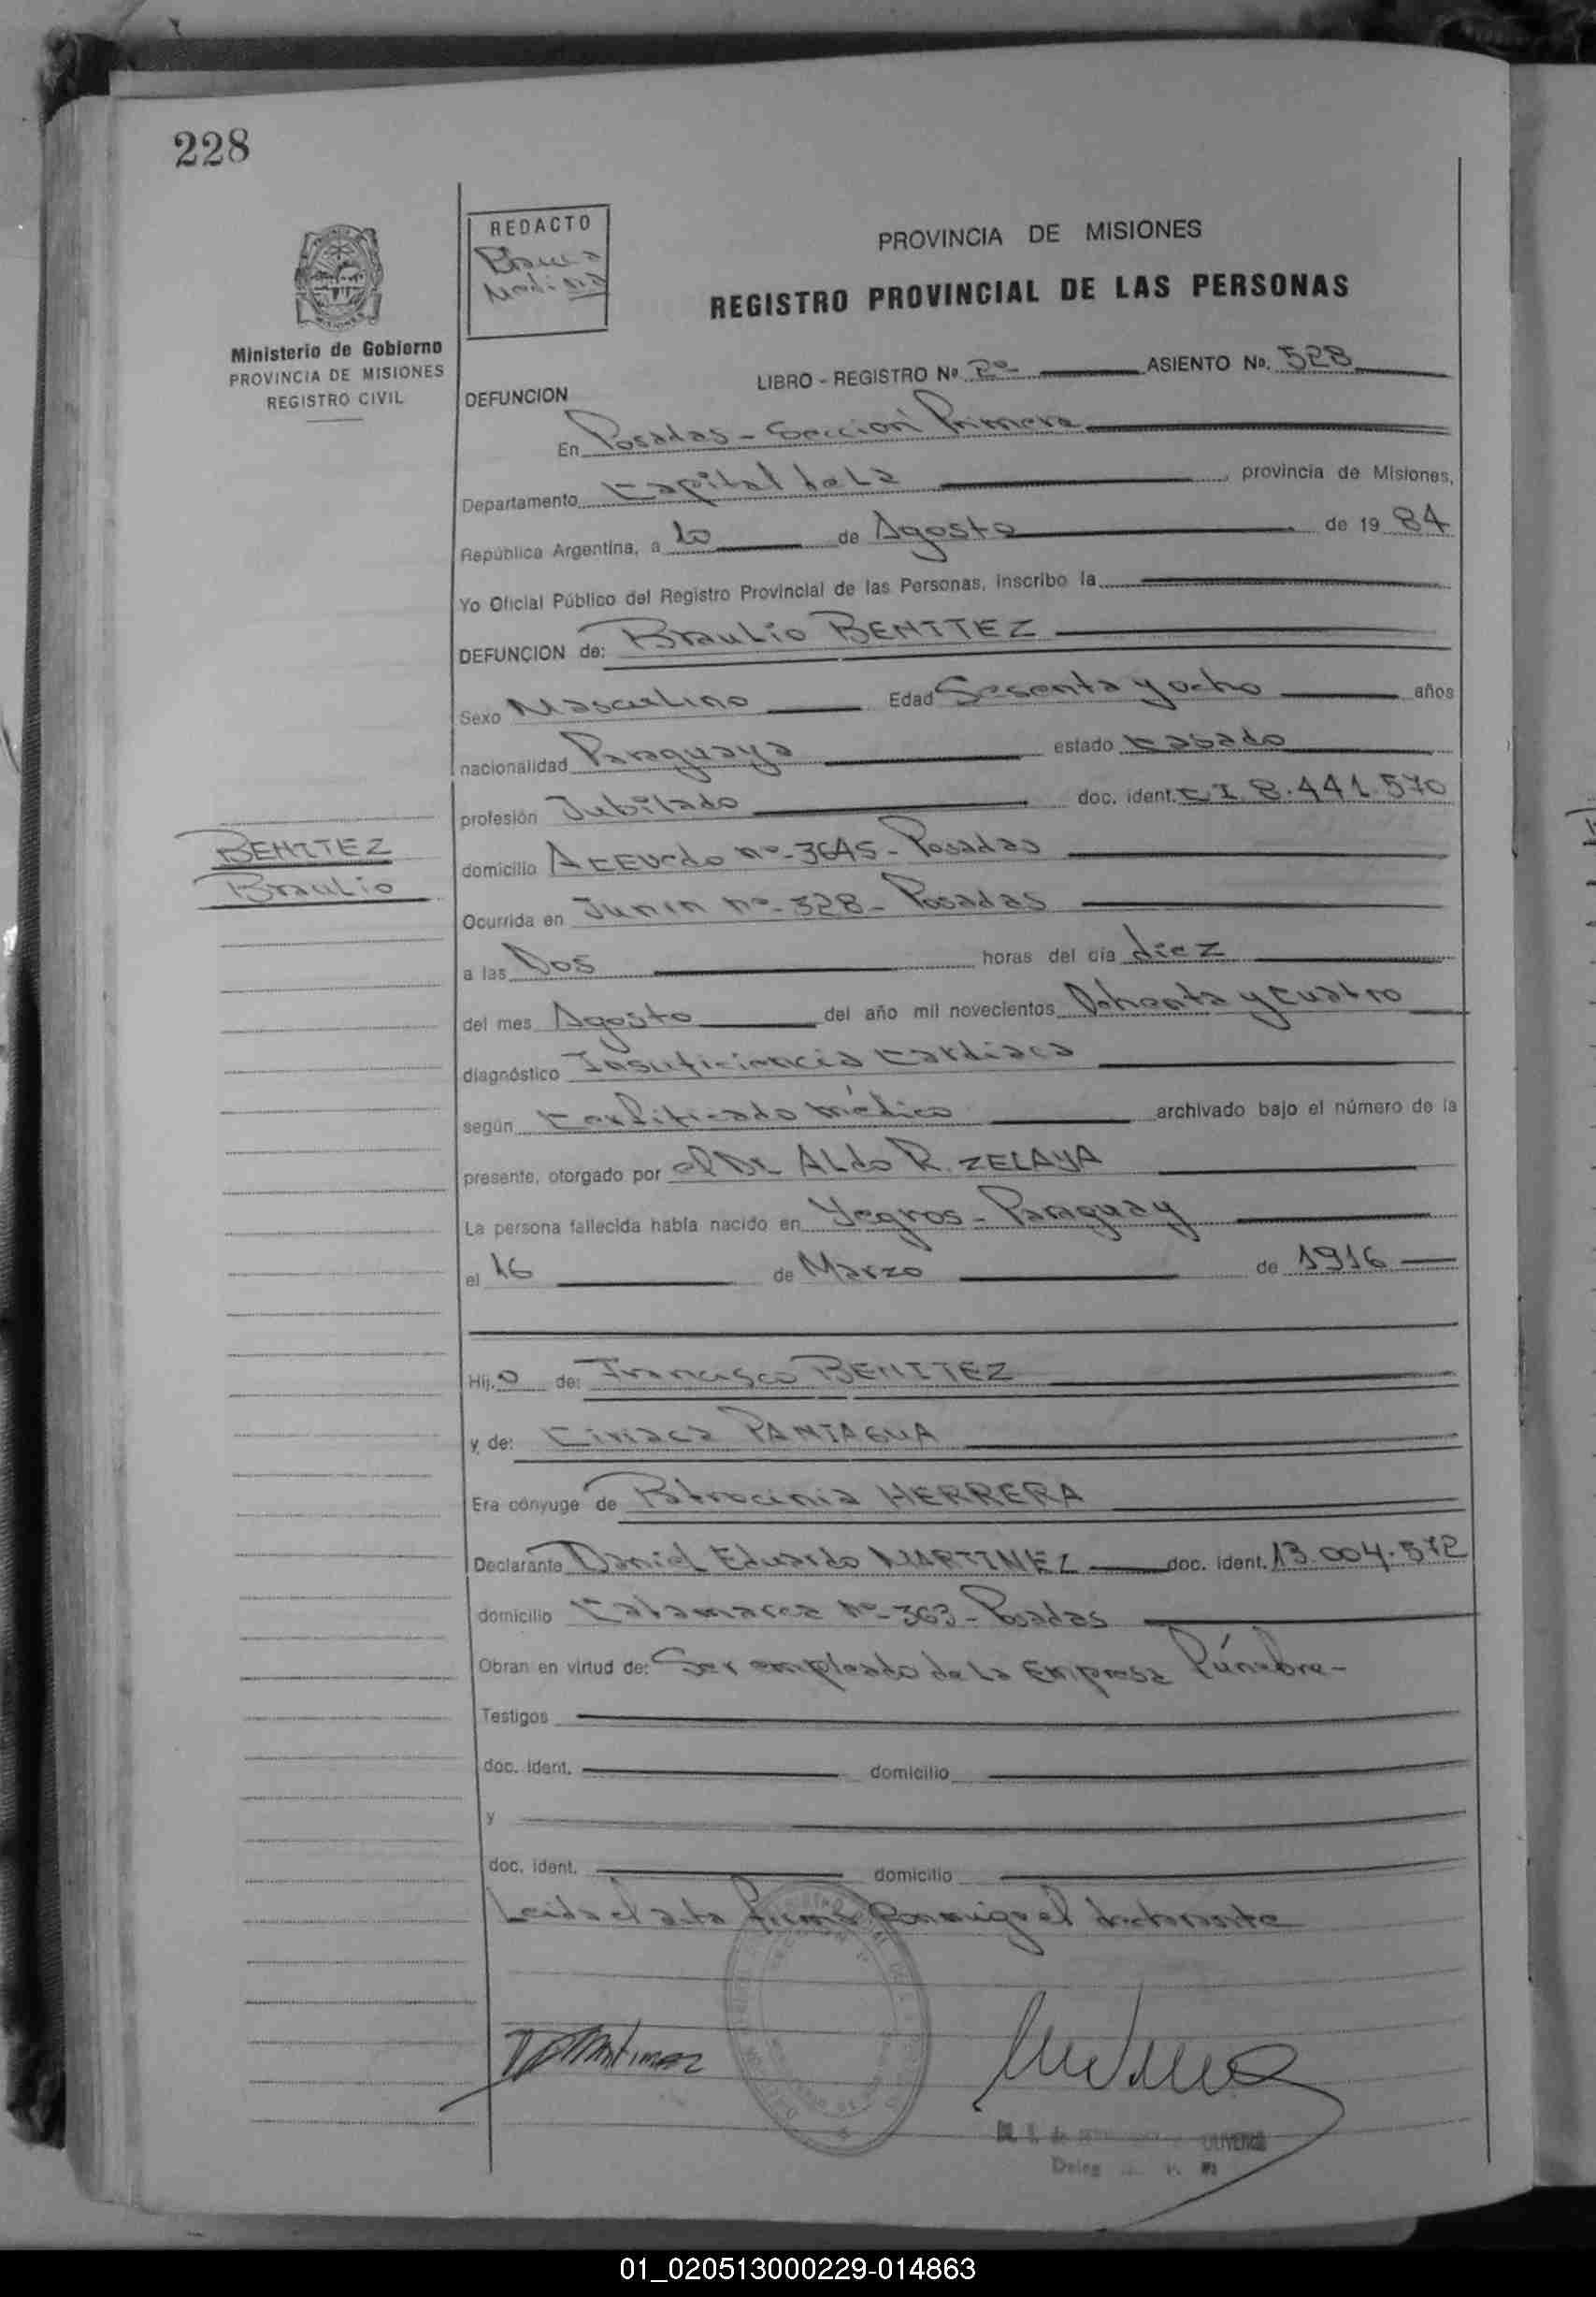 228
REDACTO
PROVINCIA DE MISIONES
REGISTRO PROVINCIAL DE LAS PERSONAS
Ministerio de Gobierno
PROVINCIA DE MISIONES
REGISTRO CIVIL
LIBRO - REGISTRO Nº 2º ASIENTO No. 528
DEFUNCION
En Posadas - Sección Primera
Departamento Capital de La, provincia de Misiones,
República Argentina, a 10 de Agosto de 19 84
Yo Oficial Público del Registro Provincial de las Personas, inscribo la
DEFUNCION de: Braulio BENITEZ
Sexo Masculino Edad Sesenta y ocho años
nacionalidad Paraguaya estado casado
profesión Jubilado doc. ident. C.I. 8.441.570
BENITEZ
Braulio
domicilio Acevedo nº- 3645 - Posadas
Ocurrida en Junin nº- 328 - Posadas
a las Dos horas del día diez
del mes Agosto del año mil novecientos Ochenta y cuatro
diagnóstico Insuficiencia cardiaca
según certificado médico archivado bajo el número de la
presente, otorgado por el Dr. Aldo R. ZELAYA
La persona fallecida había nacido en Yegros - Paraguay
el 16 de Marzo de 1916
Hijo de: Francisco BENITEZ
y de: Ciriaca PANIAGUA
Era cónyuge de Patrocinia HERRERA
Declarante Daniel Eduardo MARTINEZ doc. ident. 13.004.572
domicilio Catamarca nº- 363 - Posadas
Obran en virtud de: Ser empleado de la Empresa Fúnebre -
Testigos
doc. ident. domicilio
y
doc. ident. domicilio
Leida el acta firma conmigo el declarante
D Martinez
01_020513000229-014863